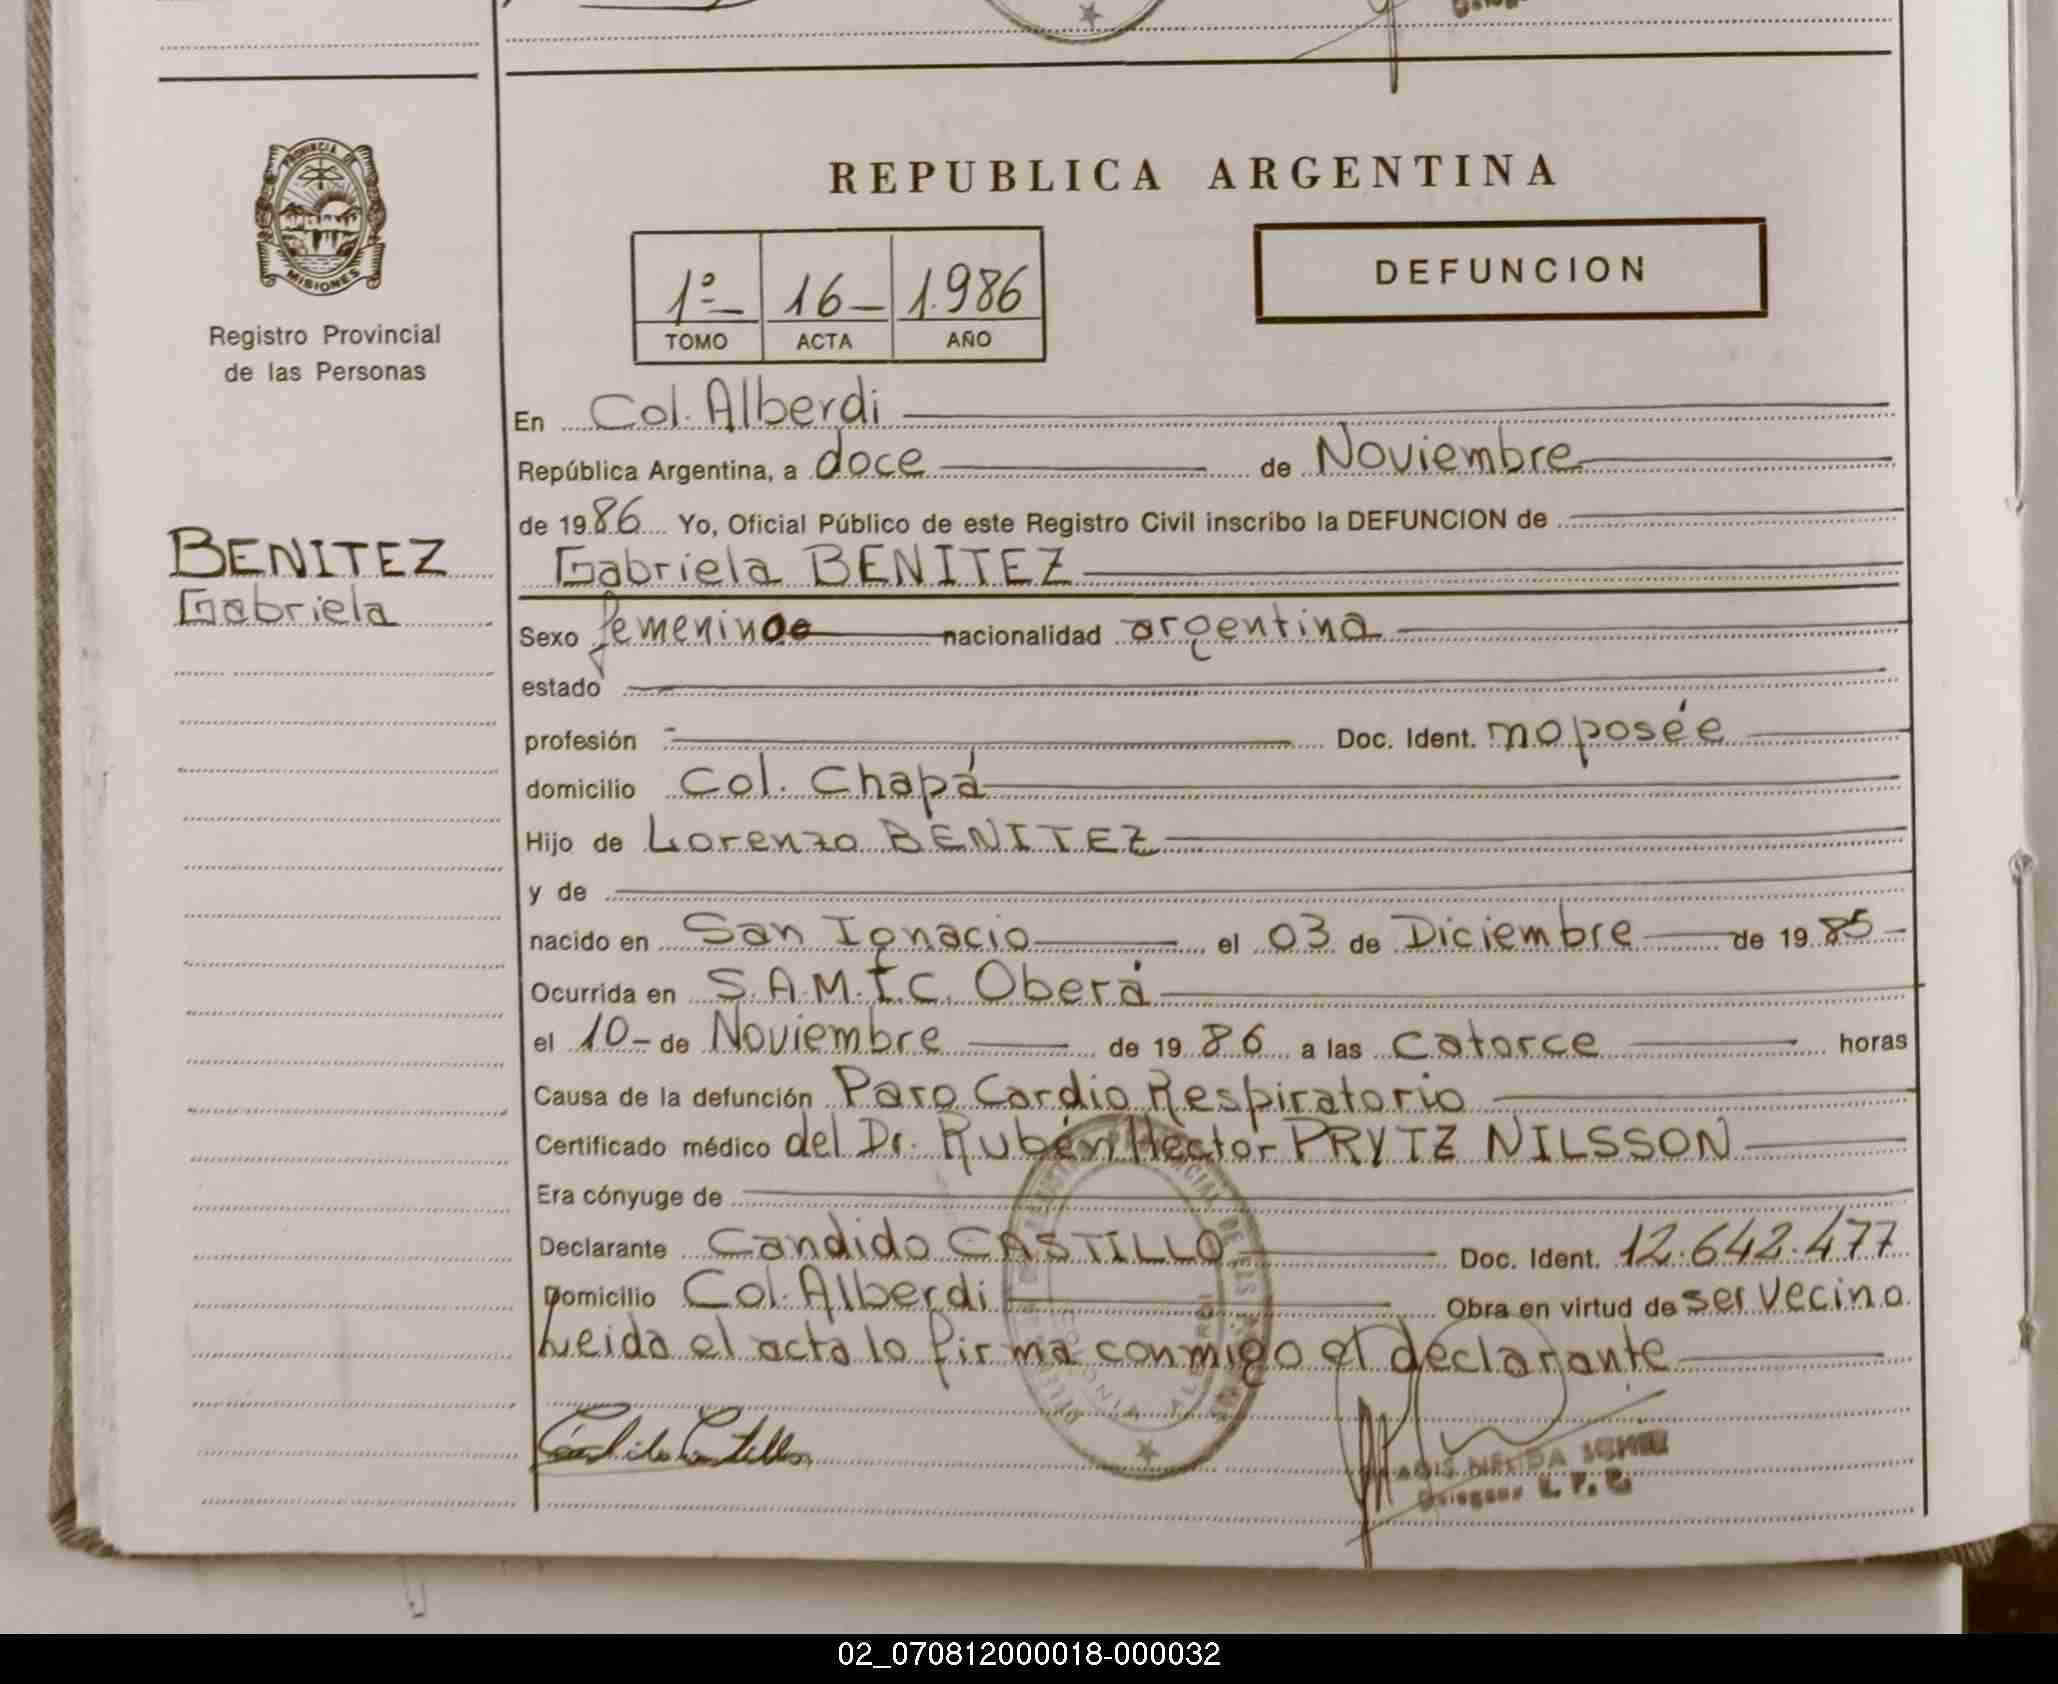 PROVINCIA DE
MISIONES
Registro Provincial
de las Personas
BENITEZ
Gabriela
REPUBLICA ARGENTINA
1º 16 1.986
TOMO ACTA AÑO
DEFUNCION
En Col. Alberdi
República Argentina, a doce de Noviembre
de 1986 Yo, Oficial Público de este Registro Civil inscribo la DEFUNCION de
Gabriela BENITEZ
Sexo femenino nacionalidad argentina
estado
profesión Doc. Ident. no posée
domicilio Col. Chapá
Hijo de Lorenzo BENITEZ
y de
nacido en San Ignacio el 03 de Diciembre de 1985
Ocurrida en S.A.M.I.C. Oberá
el 10 de Noviembre de 1986 a las catorce horas
Causa de la defunción Paro Cardio Respiratorio
Certificado médico del Dr. Rubén Hector PRYTZ NILSSON
Era cónyuge de
Declarante Candido CASTILLO Doc. Ident. 12.642.477
Domicilio Col. Alberdi Obra en virtud de ser vecino
Leida el acta lo firma conmigo el declarante
Candido Castillo
COLONIA ALBERDI
NELIDA
02_070812000018-000032